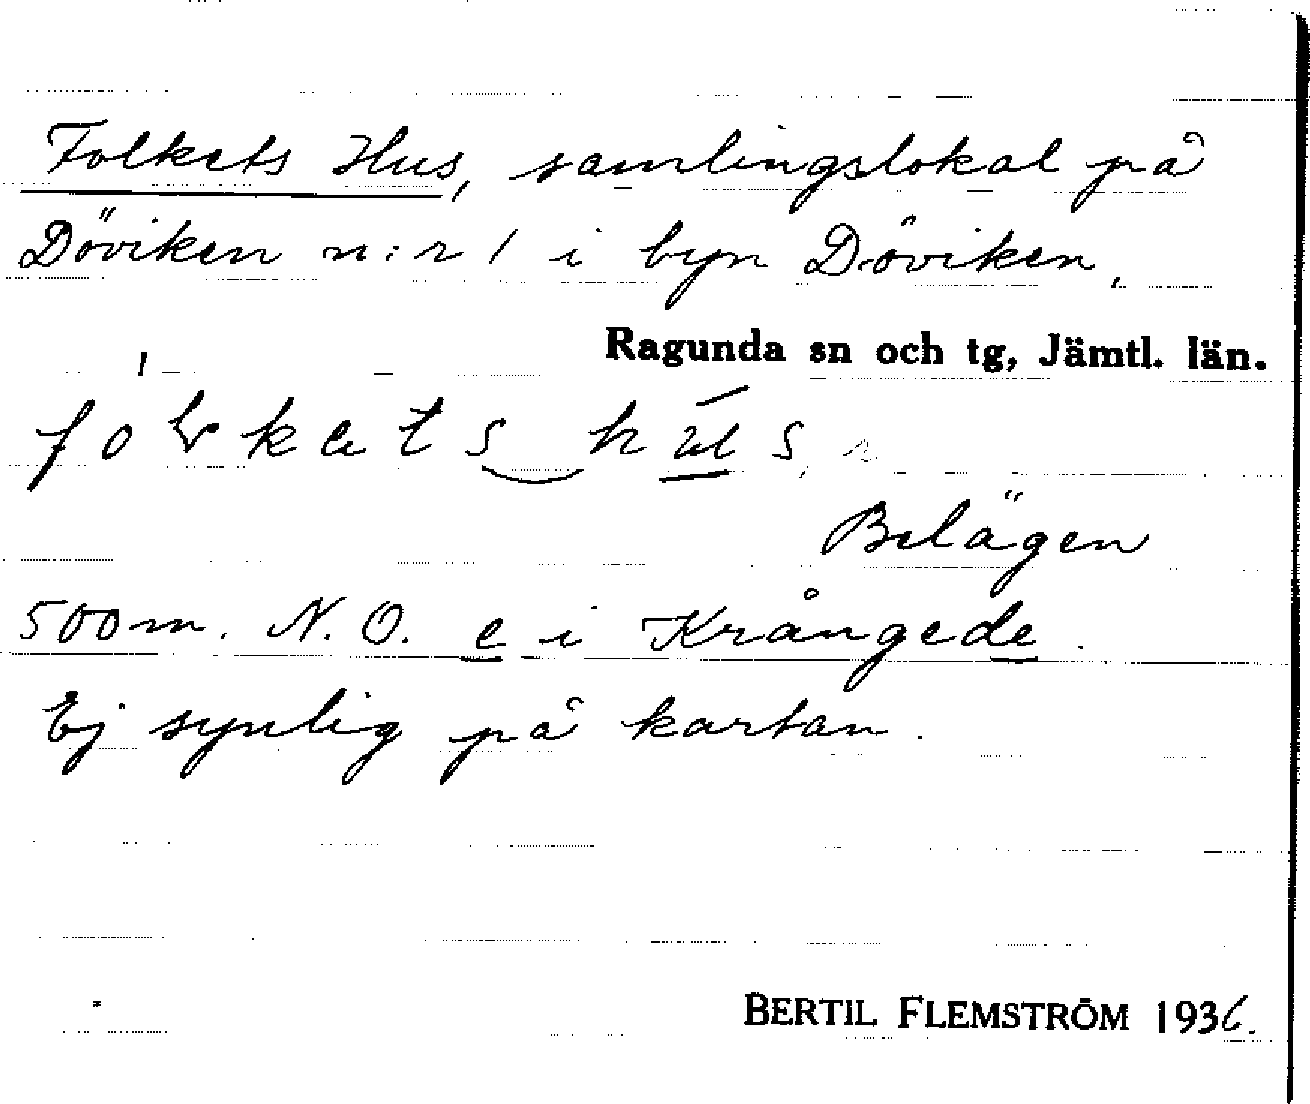 Folkets Hus, samlingslokal på
Döviken n:r 1 i byn Döviken,
Ragunda sn och tg, Jämtl. län.
Belägen
500 m. N.O. e i Krångede.
Ej synlig på kartan.
BERTIL FLEMSTRÖM 1936.